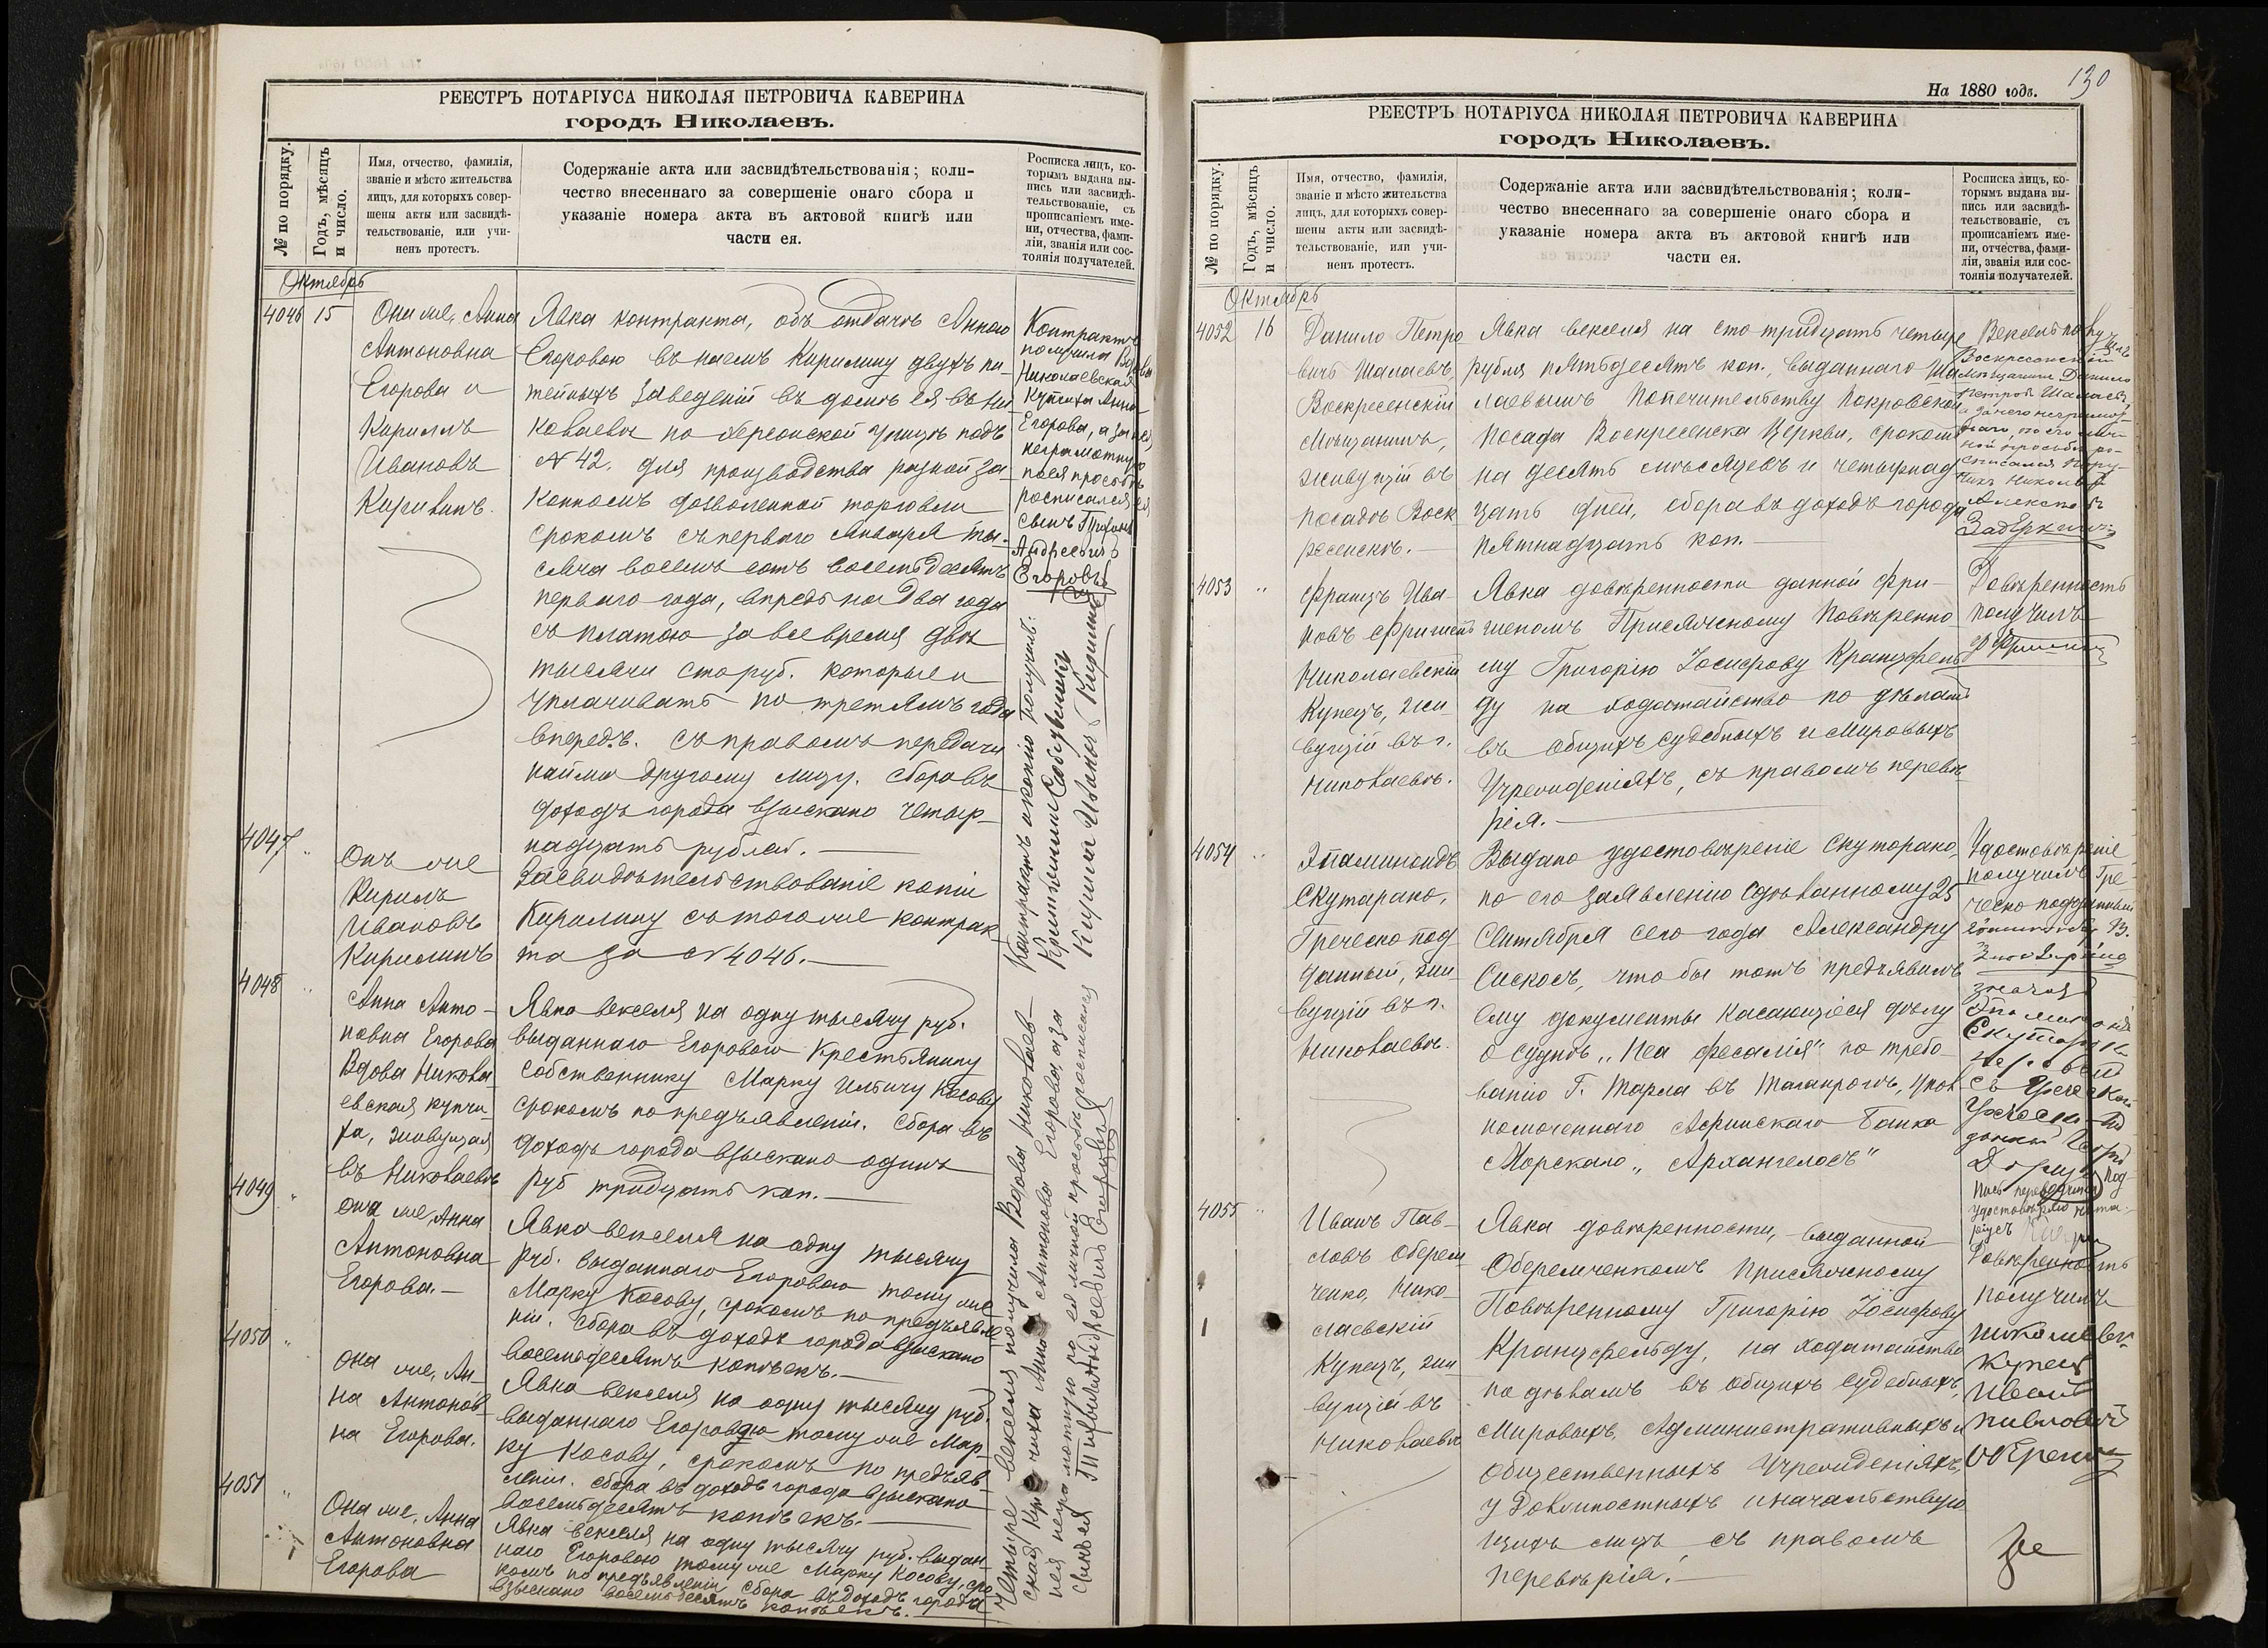 РЕЕСТРЪ НОТАРІУСА НИКОЛАЯ ПЕТРОВИЧА КАВЕРИНА
городъ Николаевъ.
№ по порядку.
Годъ, мѣсяцъ
и число.
Имя, отчество, фамилія,
званіе и мѣсто жительства
лицъ, для которыхъ совер-
шены акты или засвидѣ-
тельствованіе, или учи-
ненъ протестъ.
Содержаніе акта или засвидѣтельствованія; коли-
чество внесеннаго за совершеніе онаго сбора и
указаніе номера акта въ актовой книгѣ или
части ея.
Росписка лицъ, ко-
торымъ выдана вы-
пись или засвидѣ-
тельствованіе, съ
прописаніемъ име-
ни, отчества, фами-
ліи, званія или сос-
тоянія получателей.
Октябрь
4046 15
Она же, Анна
Антоновна
Егорова и
Кириллъ
Ивановъ
Явка контракта, объ отдачѣ Анною
Егоровою въ наемъ Кирилину двухъ пи
тейныхъ заведеній въ домѣ ея въ Ни
колаевѣ по Херсонской улицѣ подъ
№ 42. для производства разной за-
конномъ дозволенной торговли
срокомъ съ перваго Января ты-
сяча восемь сотъ восемьдесятъ
перваго года, впредь на два года
съ платою за все время двѣ
тысячи сто руб. которые и
уплачивать по третямъ года
впередъ. съ правомъ передачи
найма другому лицу. сбора въ
доходъ города взыскано четыр-
надцать рублей.
Контрактъ
получила Вдова
Николаевская
Купчиха Анна
Егорова, а за нее,
неграмотную
по ея просьбѣ
росписался ея
сынъ Тихонъ
Андреевъ
Егоровъ
4047 "
Онъ же
Кирилъ
Ивановъ
Кирилинъ
Засвидѣтельствованіе копіи
Кирилину съ того же контрак-
та за № 4046.
Контрактъ и копію получилъ:
Крестьянинъ Собственникъ
Кирила Ивановъ Кирилинъ
4048 "
Анна Анто-
новна Егорова
Вдова Никола
евская купчи-
ха, живущая
въ Николаевѣ
Явка векселя на одну тысячу руб.
выданнаго Егоровою Крестьянину
собственнику Марку Ильичу Косову
срокомъ по предъявленіи. Сбора въ
доходъ города взыскано одинъ
руб тридцать коп.
4049 "
она же, Анна
Антоновна
Егорова.
Явка векселя на одну тысячу
руб. выданнаго Егоровою тому же
Марку Косову, срокомъ по предъявле
ніи. Сбора въ доходъ города взыскано
восемьдесятъ копѣекъ.
4050 "
Она же, Ан-
на Антонов-
на Егорова.
Явка векселя на одну тысячу руб.
выданнаго Егоровою тому же Мар-
ку Косову, срокомъ по предъяв-
леніи. сбора въ доходъ города взыскано
восемьдесятъ копѣекъ.
4051 "
Она же, Анна
Антоновна
Егорова
Явка векселя на одну тысячу руб. выдан-
наго Егоровою тому же Марку Косову, сро
комъ по предъявленіи сбора въ доходъ города
взыскано восемьдесятъ копѣекъ.
Четыре векселя получила Вдова Николаев-
ская Купчиха Анна Антоновна Егорова а за
нея неграмотную по ея личной просьбѣ росписался
сынъ ея Тихонъ Андреевичъ Егоровъ
На 1880 годъ.
130
РЕЕСТРЪ НОТАРІУСА НИКОЛАЯ ПЕТРОВИЧА КАВЕРИНА
городъ Николаевъ.
№ по порядку.
Годъ, мѣсяцъ
и число.
Имя, отчество, фамилія,
званіе и мѣсто жительства
лицъ, для которыхъ совер-
шены акты или засвидѣ-
тельствованіе, или учи-
ненъ протестъ.
Содержаніе акта или засвидѣтельствованія; коли-
чество внесеннаго за совершеніе онаго сбора и
указаніе номера акта въ актовой книгѣ или
части ея.
Росписка лицъ, ко-
торымъ выдана вы-
пись или засвидѣ-
тельствованіе, съ
прописаніемъ име-
ни, отчества, фами-
ліи, званія или сос-
тоянія получателей.
Октябрь
4052 16
Данило Петро
вичъ Шалаевъ,
Воскресенскій
Мѣщанинъ,
живущій въ
посадѣ Воск
ресенскѣ.
Явка векселя на сто тридцать четыре
рубля пятьдесятъ коп., выданнаго Ша
лаевымъ Попечительству Покровской
посада Воскресенска Церкви, срокомъ
на десять мѣсяцевъ и четырнад
цать дней, сбора въ доходъ города
пятнадцать коп.
Вексель получилъ
Воскресенскій
Мѣщанинъ Данило
Петровъ Шалаевъ,
а за него неграмот-
наго, по его лич-
ной просьбѣ ро-
списался
Николай
4053 "
Францъ Ива-
новъ Фришенъ
Николаевскій
Купецъ, жи-
вущій въ г.
Николаевѣ.
Явка довѣренности данной Фри-
шеномъ Присяжному Повѣренно
му Григорію Іосифову Кранцфель
ду на ходатайство по дѣламъ
въ общихъ судебныхъ и Мировыхъ
Учрежденіяхъ, съ правомъ перевѣ
рія.
Довѣренность
получилъ
4054 "
Эпаминондъ
Скутарако,
Греческо под
данный, жи-
вущій въ г.
Николаевѣ.
Выдано удостовѣреніе Скутарако,
по его заявленію сдѣланному 25
Сентября сего года Александру
Сискосъ, что бы тотъ предъявилъ
ему документы касающіеся дѣлу
о суднѣ „Неа Фесалія" по требо-
ванію Г. Тарла въ Таганрогѣ, упол
номоченнаго Афинскаго Банка
Морскаго „Архангелосъ"
Удостовѣреніе
получилъ Гре-
ческо подданный
4055 "
Иванъ Пав-
ловъ Оберем
ченко, Нико
лаевскій
Купецъ, жи
вущій въ
Николаевѣ
Явка довѣренности, выданной
Оберемченкомъ Присяжному
Повѣренному Григорію Іосифову
Кранцфельду, на ходатайство
по дѣламъ въ общихъ судебныхъ,
Мировыхъ, Административныхъ и
общественныхъ Учрежденіяхъ,
у Должностныхъ и начальствую
щихъ лицъ, съ правомъ
перевѣрія.
Довѣренность
получилъ
Николаевск
Купецъ
Иванъ
Павловъ